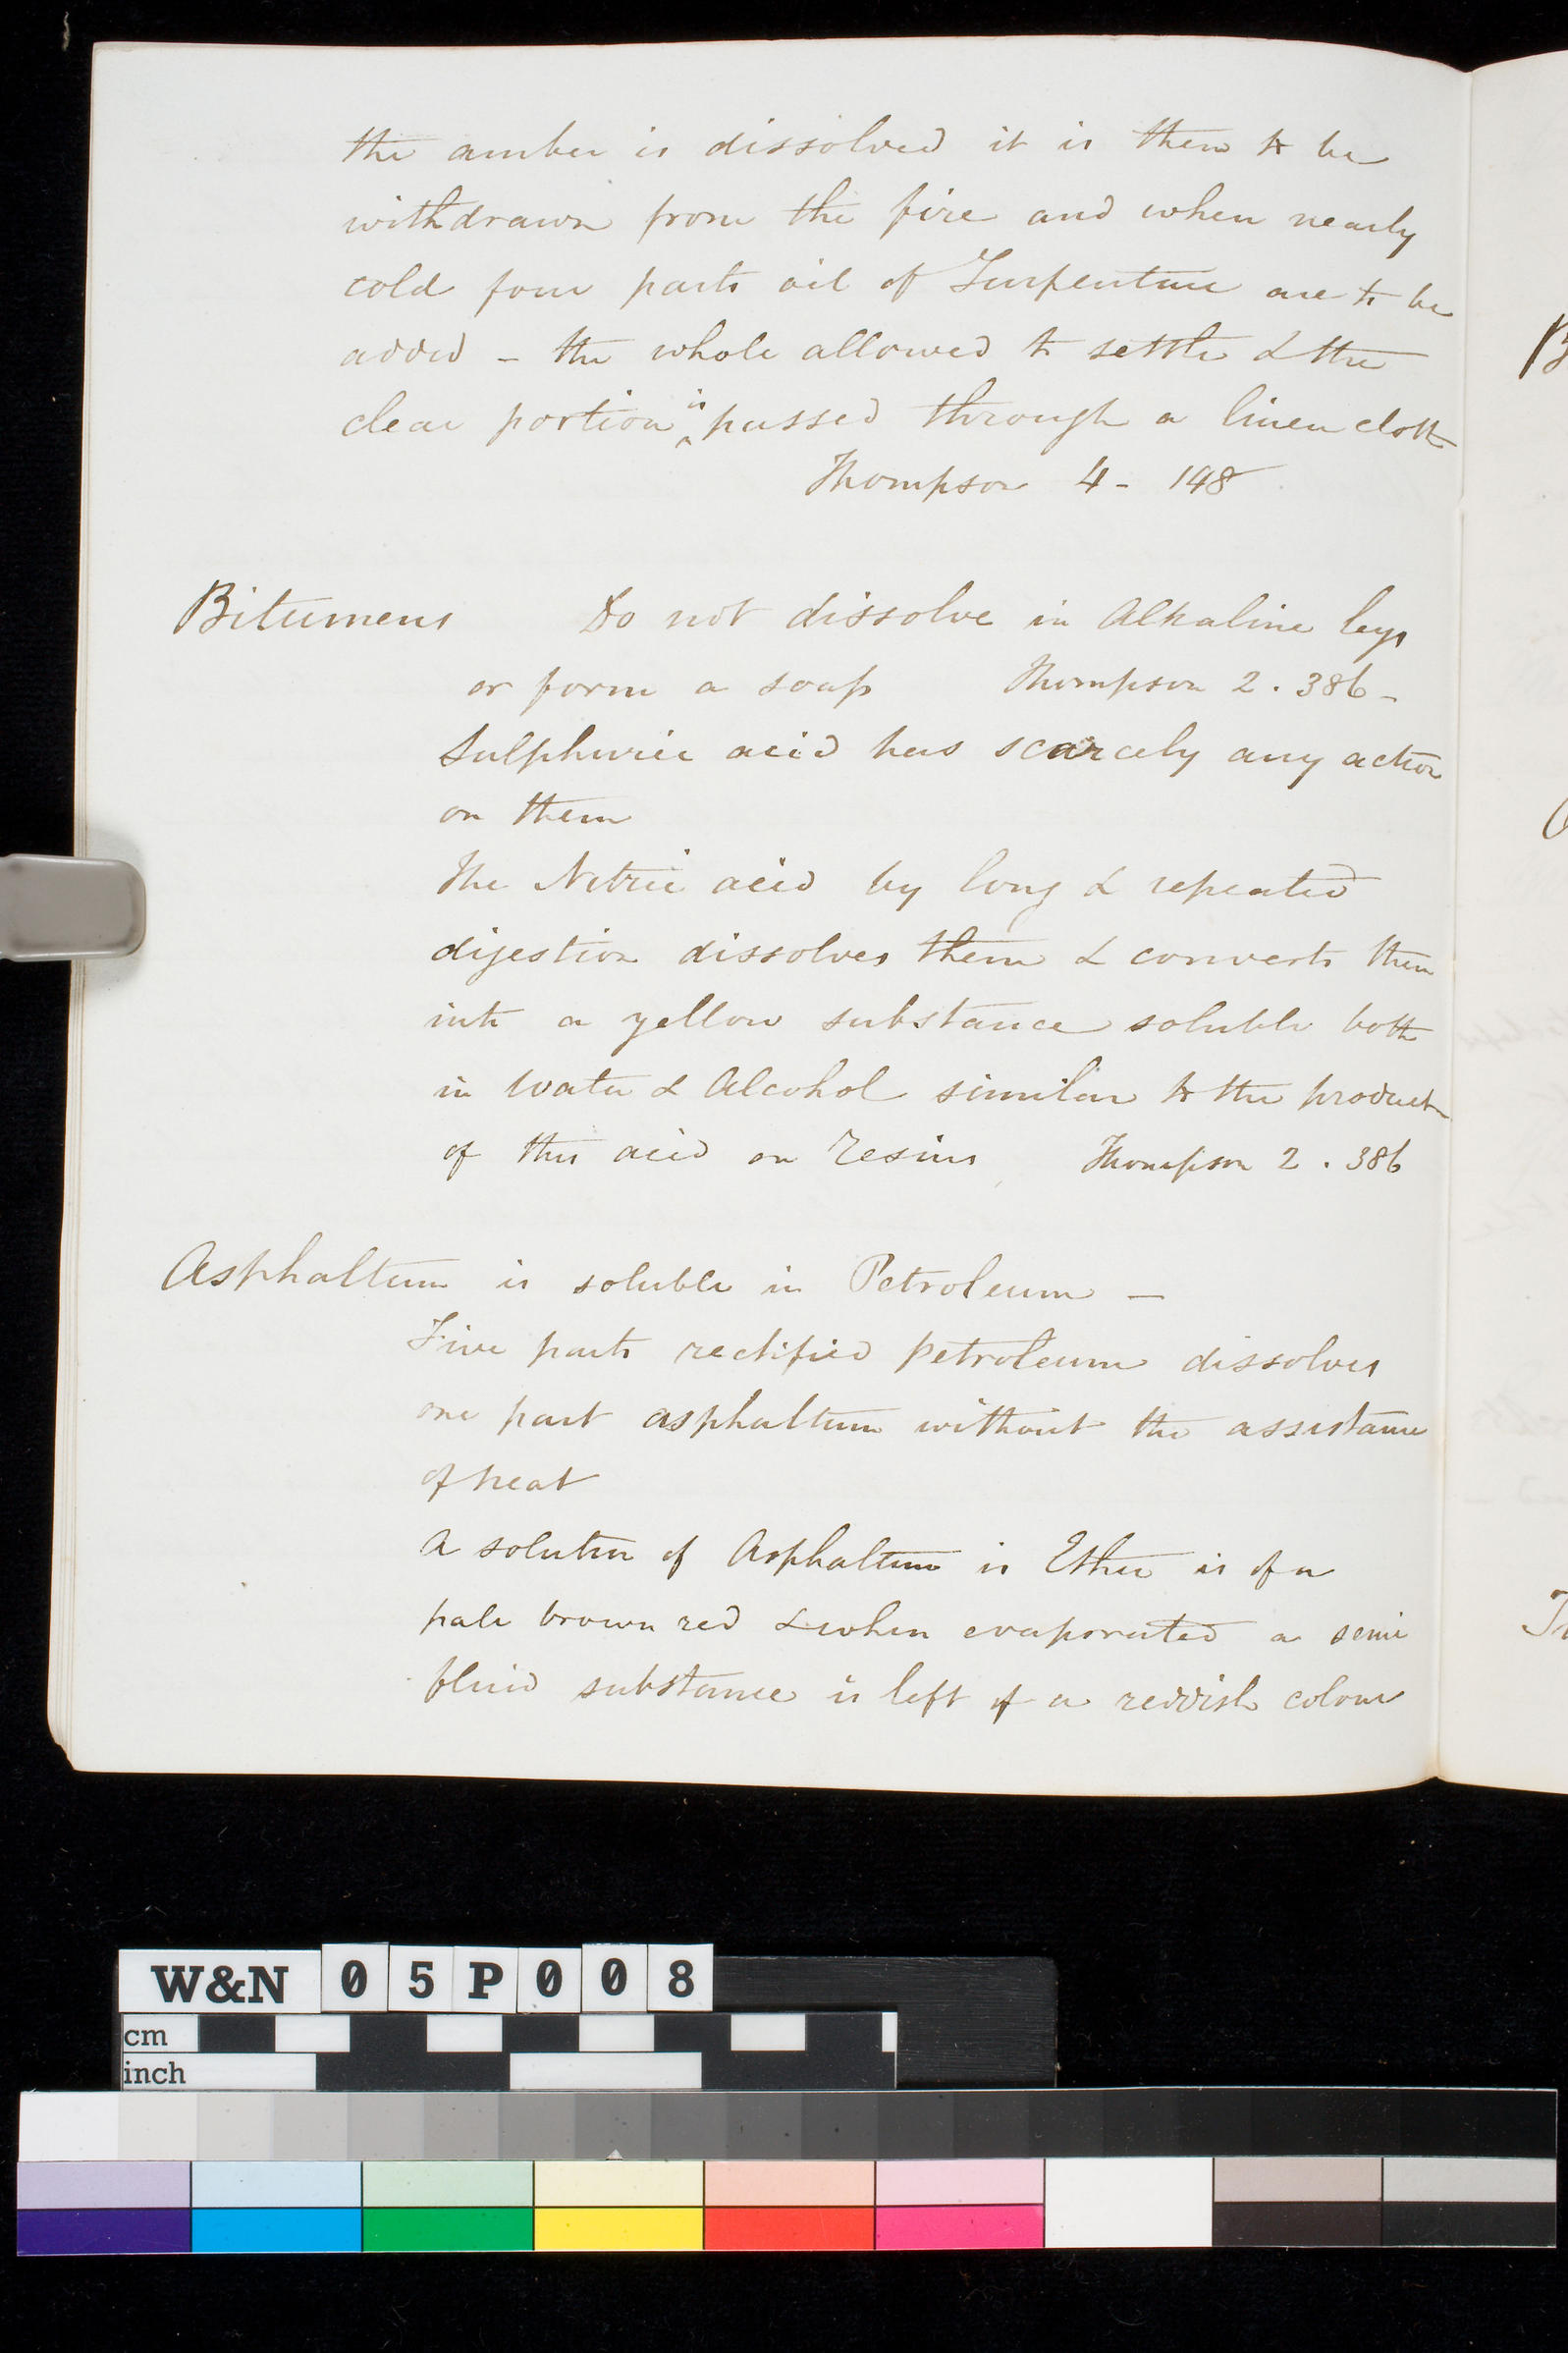 the amber is dissolved it is then to be
withdrawn from the fire and when nearly
cold four parts oil of Turpentine are to be
added - the whole allowed to settle & the
clear portion is passed through a linen cloth
Thompson 4 - 148
Bitumens Do not dissolve in Alkaline leys
or form a soap Thompson 2 . 386 -
Sulphuric acid has scarcely any action
on them
The Nitric acid by long & repeated
digestion dissolves them & converts them
into a yellow substance soluble both
in Water & Alcohol similar to the product
of this acid on Resins Thompson 2 . 386
Asphaltum is soluble in Petroleum -
Five parts rectified petroleum dissolves
one part asphaltum without the assistance
of heat
A solution of Asphaltum in Ether is of a
pale brown red & when evaporated a semi
fluid substance is left of a reddish colour
W&N 05P008
cm
inch